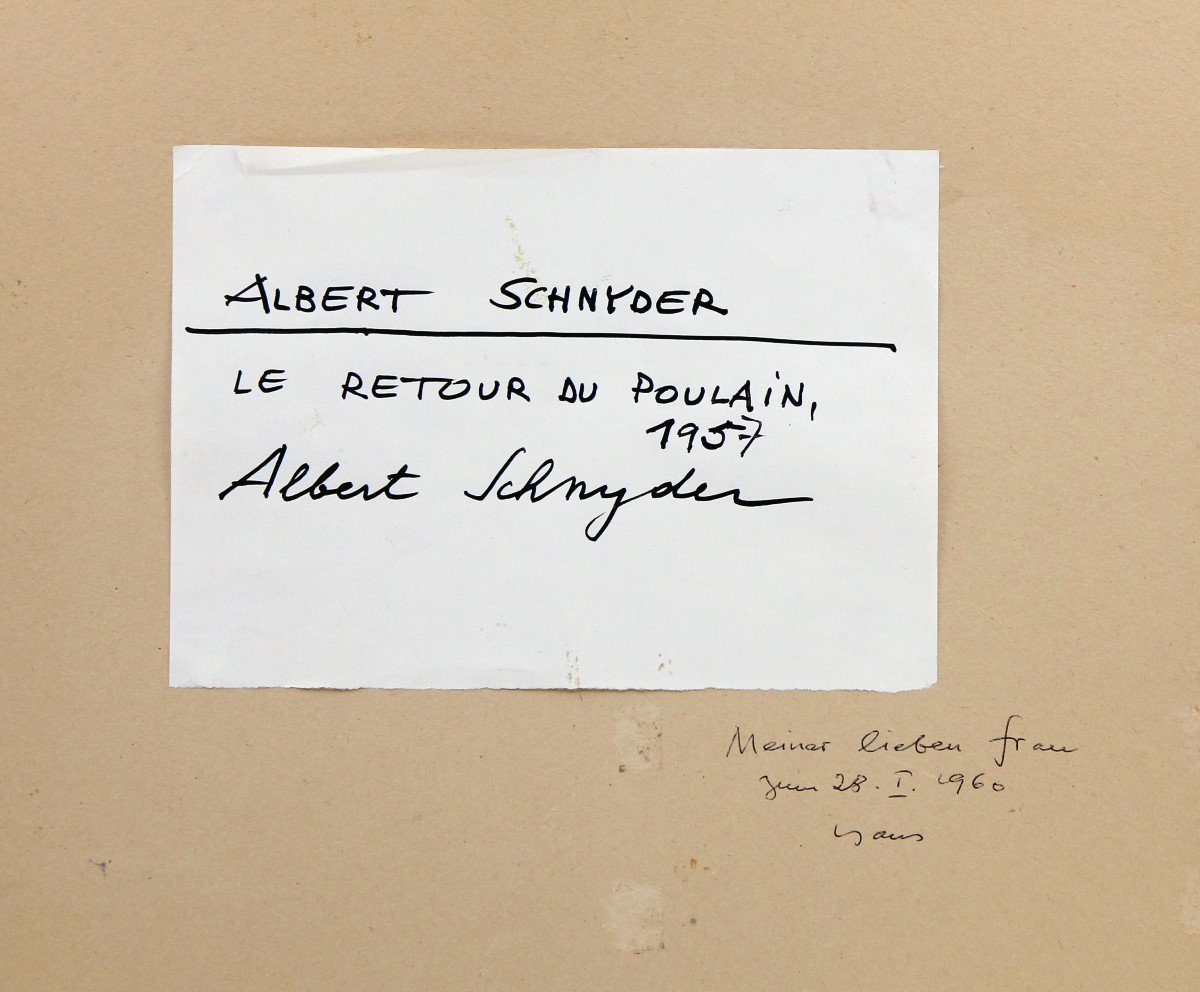 ALBERT SCHNYDER
LE RETOUR DU POULAIN,
1957
Albert Schnyder
Meiner lieben Frau
zum 28. I. 1960
Hans